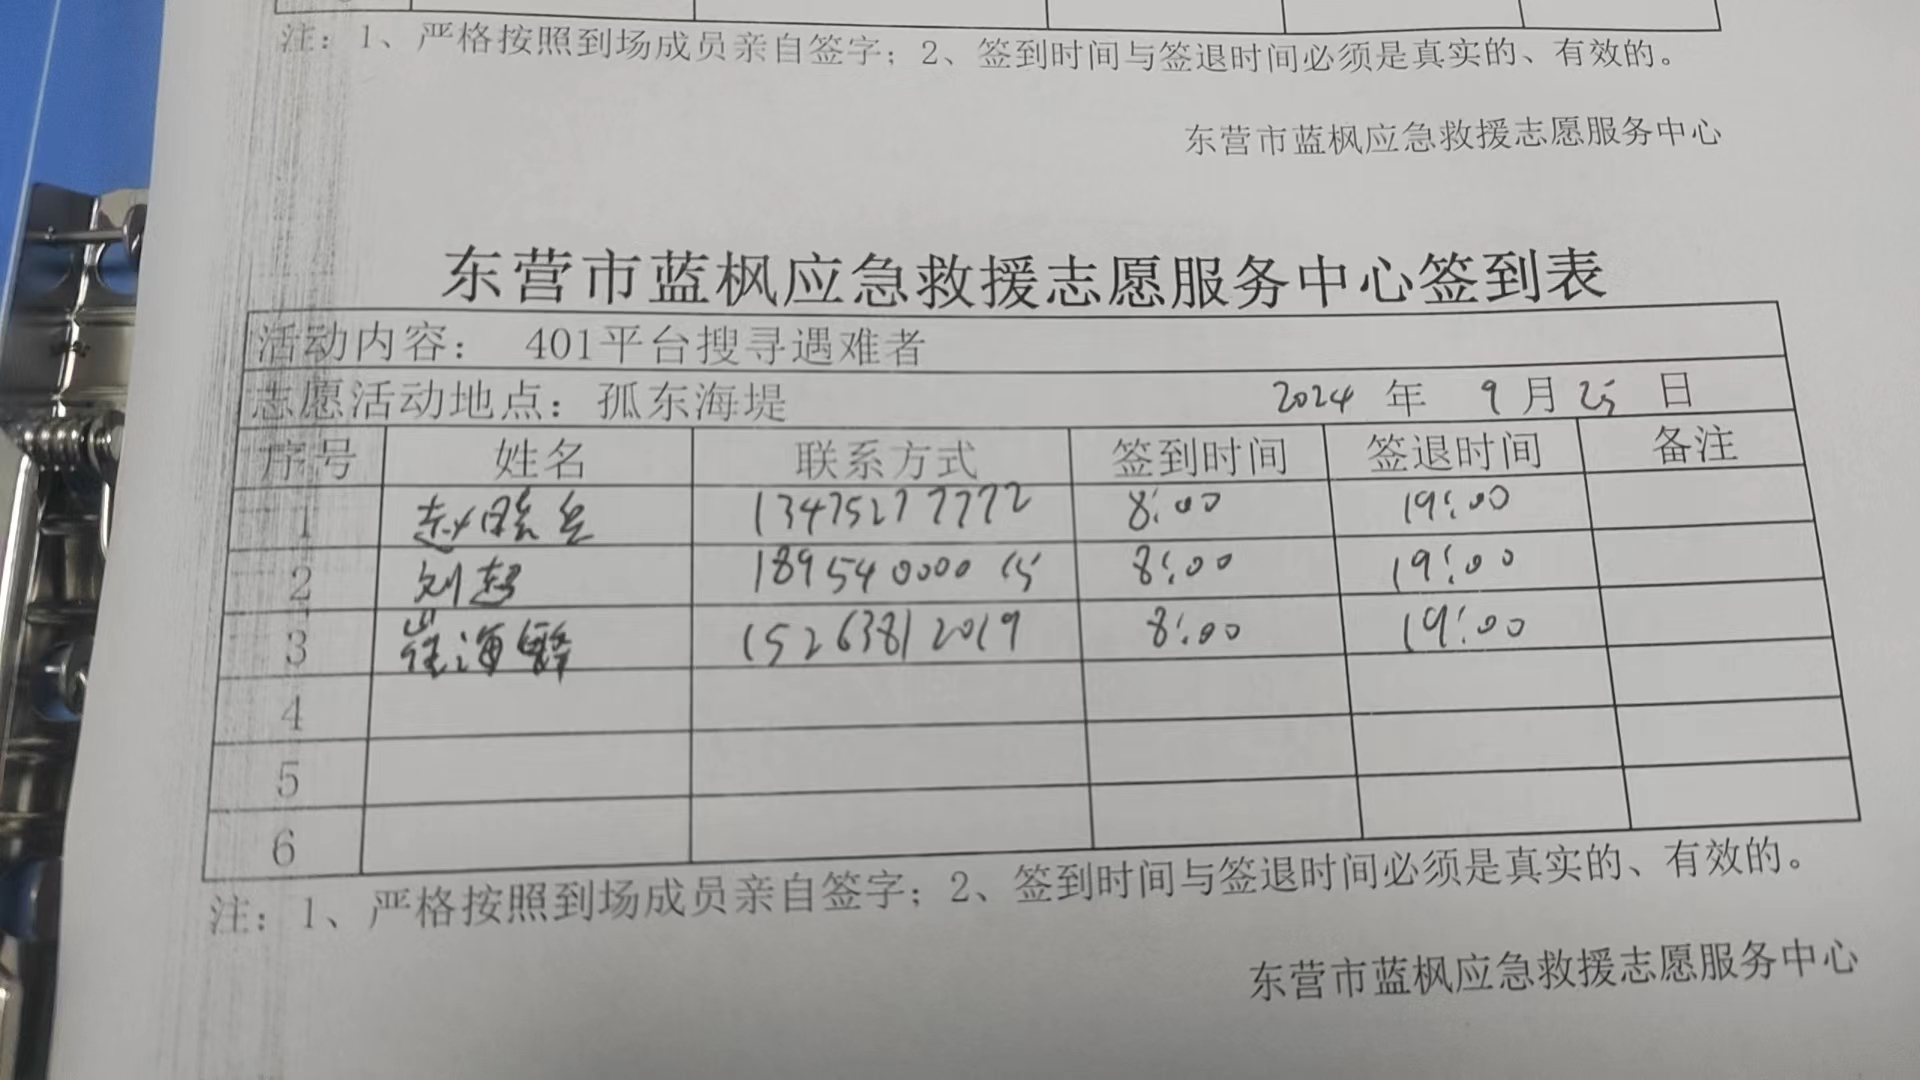 注：1、严格按照到场成员亲自签字；2、签到时间与签退时间必须是真实的、有效的。
东营市蓝枫应急救援志愿服务中心
东营市蓝枫应急救援志愿服务中心签到表
活动内容： 401平台搜寻遇难者
志愿活动地点：孤东海堤 2024 年 9 月 25 日
序号 姓名 联系方式 签到时间 签退时间 备注
1 13475277772 8:00 19:00
2 刘超 18954000015 8:00 19:00
3 崔海 15263812019 8:00 19:00
4
5
6
注：1、严格按照到场成员亲自签字；2、签到时间与签退时间必须是真实的、有效的。
东营市蓝枫应急救援志愿服务中心